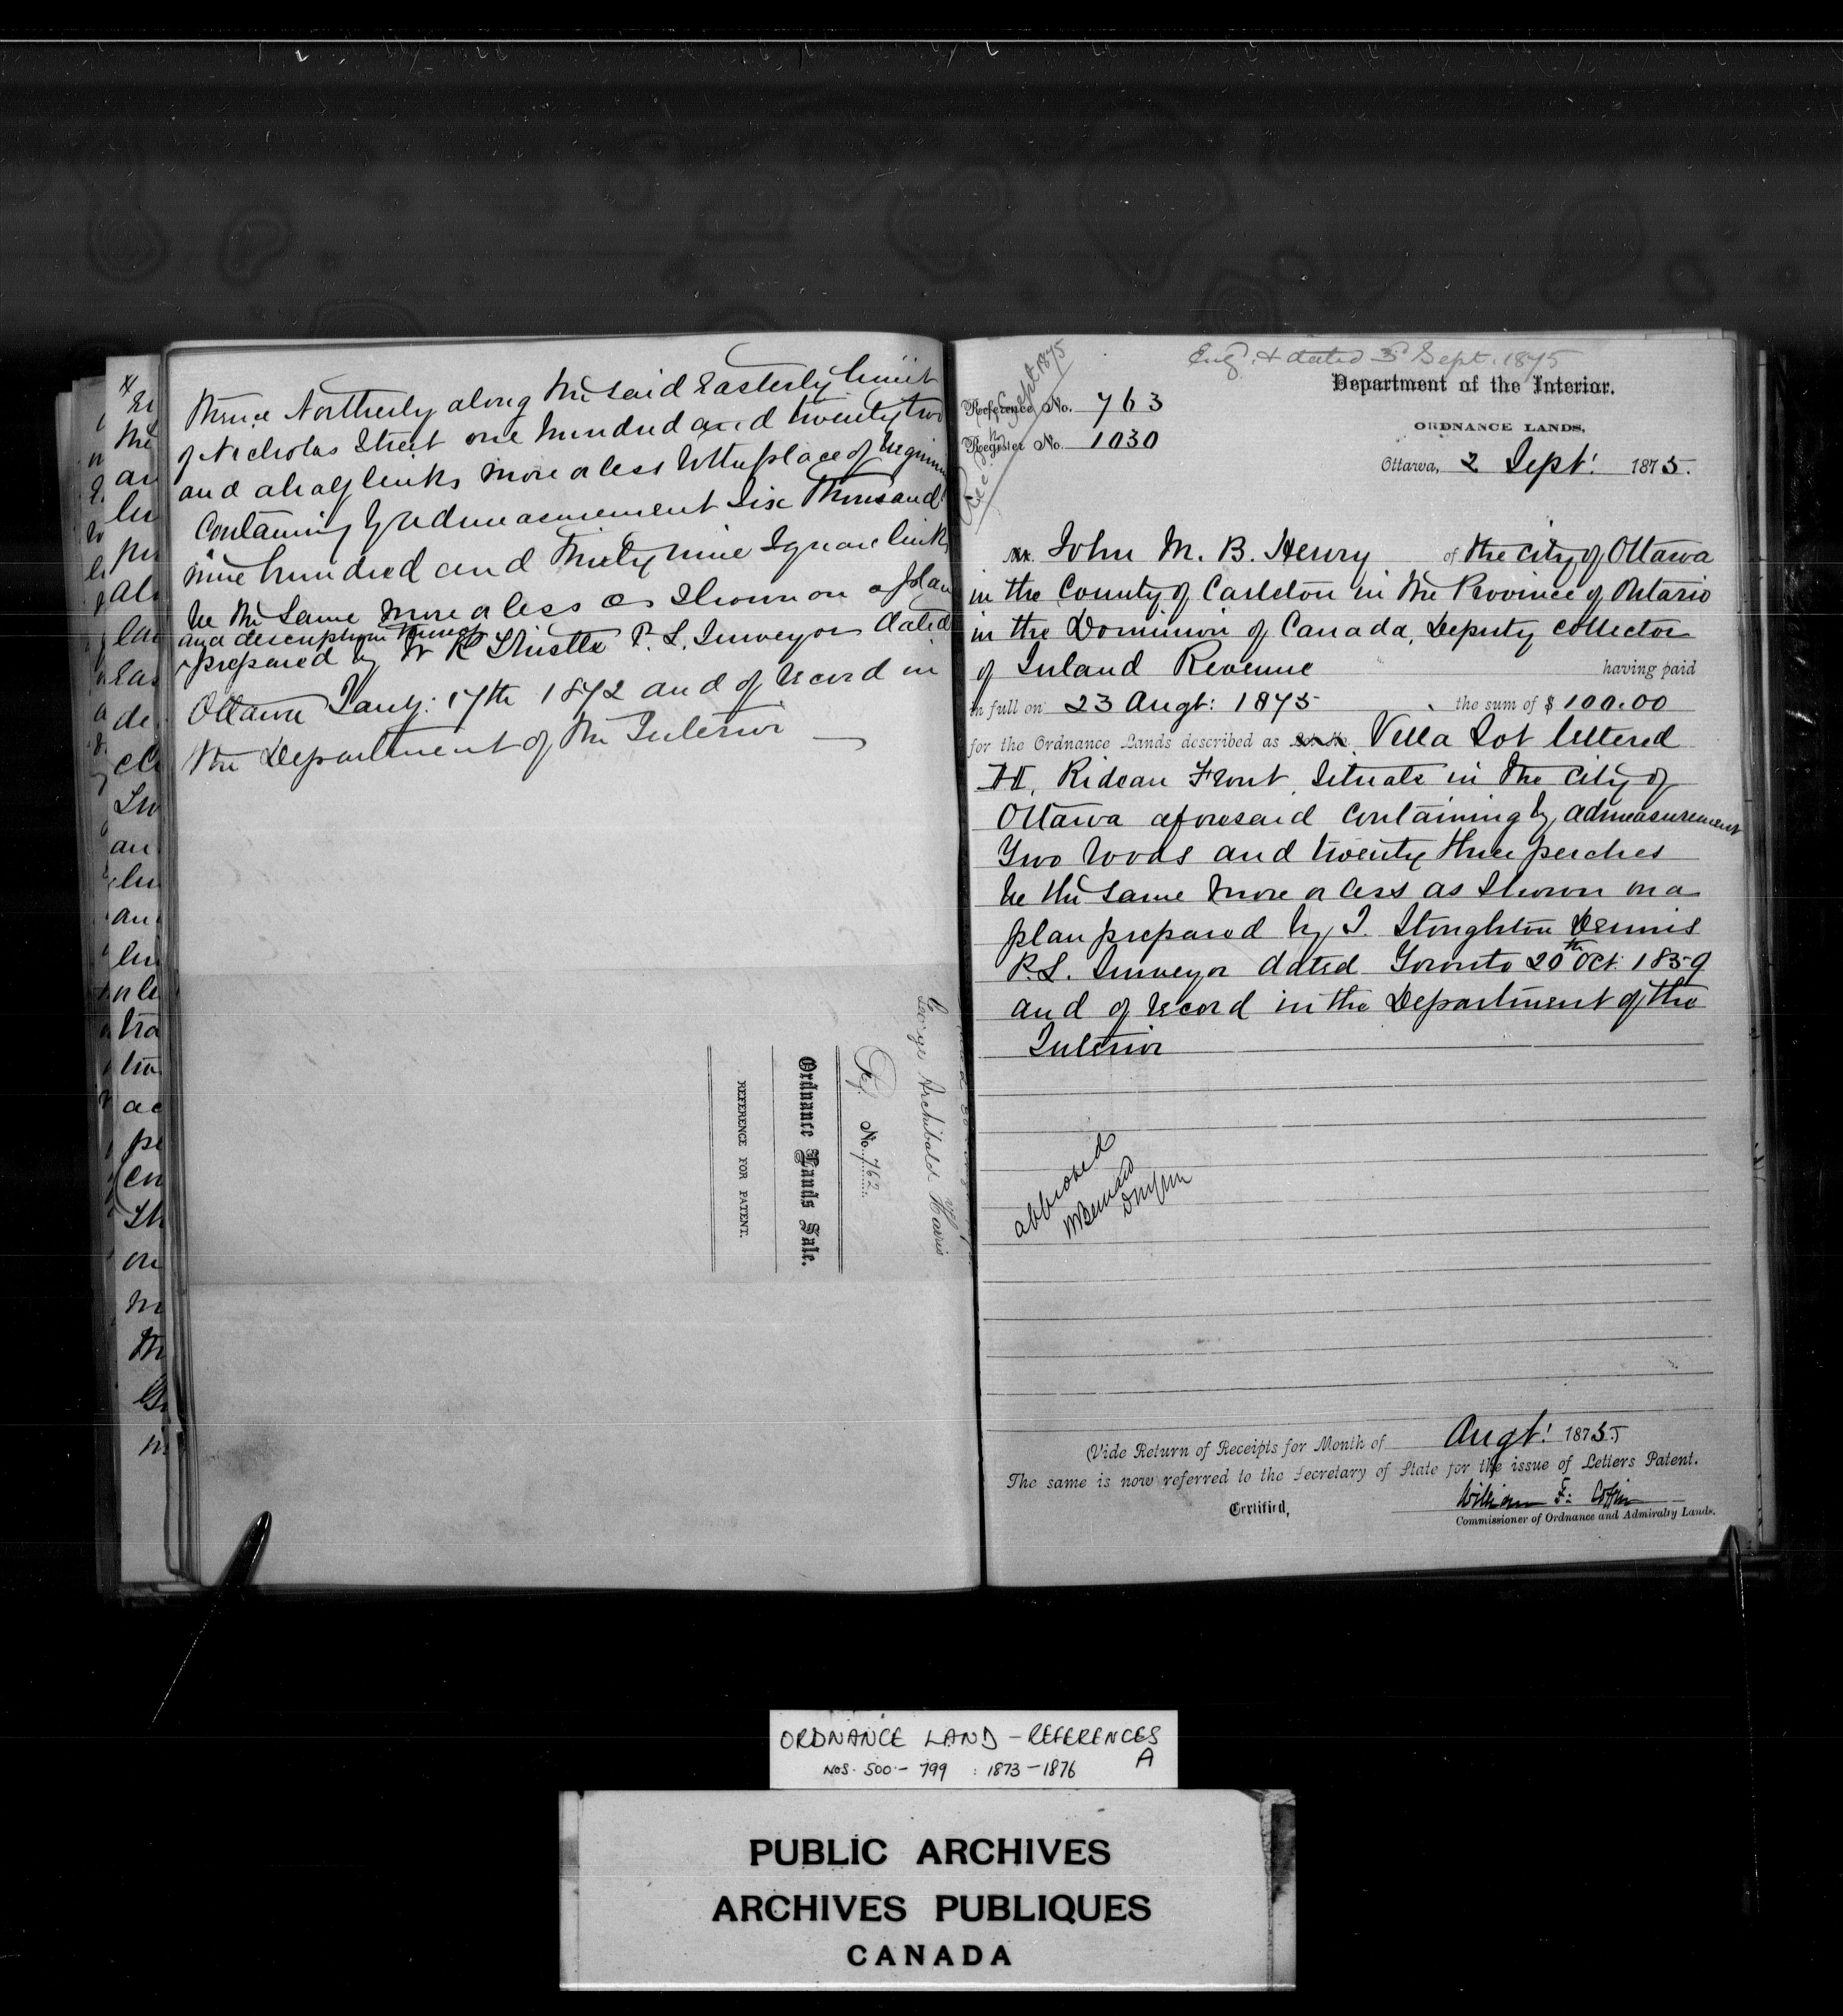 Thence Northerly along the said Easterly limit
of Nicholas Street one hundred and twenty two
and a half links more or less to the place of beginning
Containing by Admeasurement Six Thousand
nine hundred and Thirty nine Square links
be the same more or less as shown on a plan
and description thereof
prepared by W R Thistle P. L. Surveyor dated
Ottawa Jany: 17th 1872 and of record in
the Department of the Interior
George Archibald Harris
Ref. No. 762
Ordnance Lands Sale.
REFERENCE FOR PATENT.
Eng. & dated 3 Sept. 1875
Department of the Interior.
Reference No. 763
Register No. 1030
ORDNANCE LANDS,
Ottawa, 2 Sept: 1875.
Mr. John M. B. Henry of the City of Ottawa
in the County of Carleton in the Province of Ontario
in the Dominion of Canada, Deputy Collector
of Inland Revenue having paid
in full on 23 Augt: 1875 the sum of $ 100.00
for the Ordnance Lands described as Lot No. Villa Lot lettered
H, Rideau Front, Situate in the City of
Ottawa aforesaid containing by admeasurement
Two roods and twenty three perches
be the same more or less as shown on a
plan prepared by J. Stoughton Dennis
P.L. Surveyor dated Toronto 20th Oct. 1859
and of record in the Department of the
Interior
approved
(Vide Return of Receipts for Month of Augt: 1875.)
The same is now referred to the Secretary of State for the issue of Letters Patent.
Certified,
William F: Coffin
Commissioner of Ordnance and Admiralty Lands.
ORDNANCE LAND - REFERENCES
NOS. 500 - 799 : 1873 - 1876 A
PUBLIC ARCHIVES
ARCHIVES PUBLIQUES
CANADA